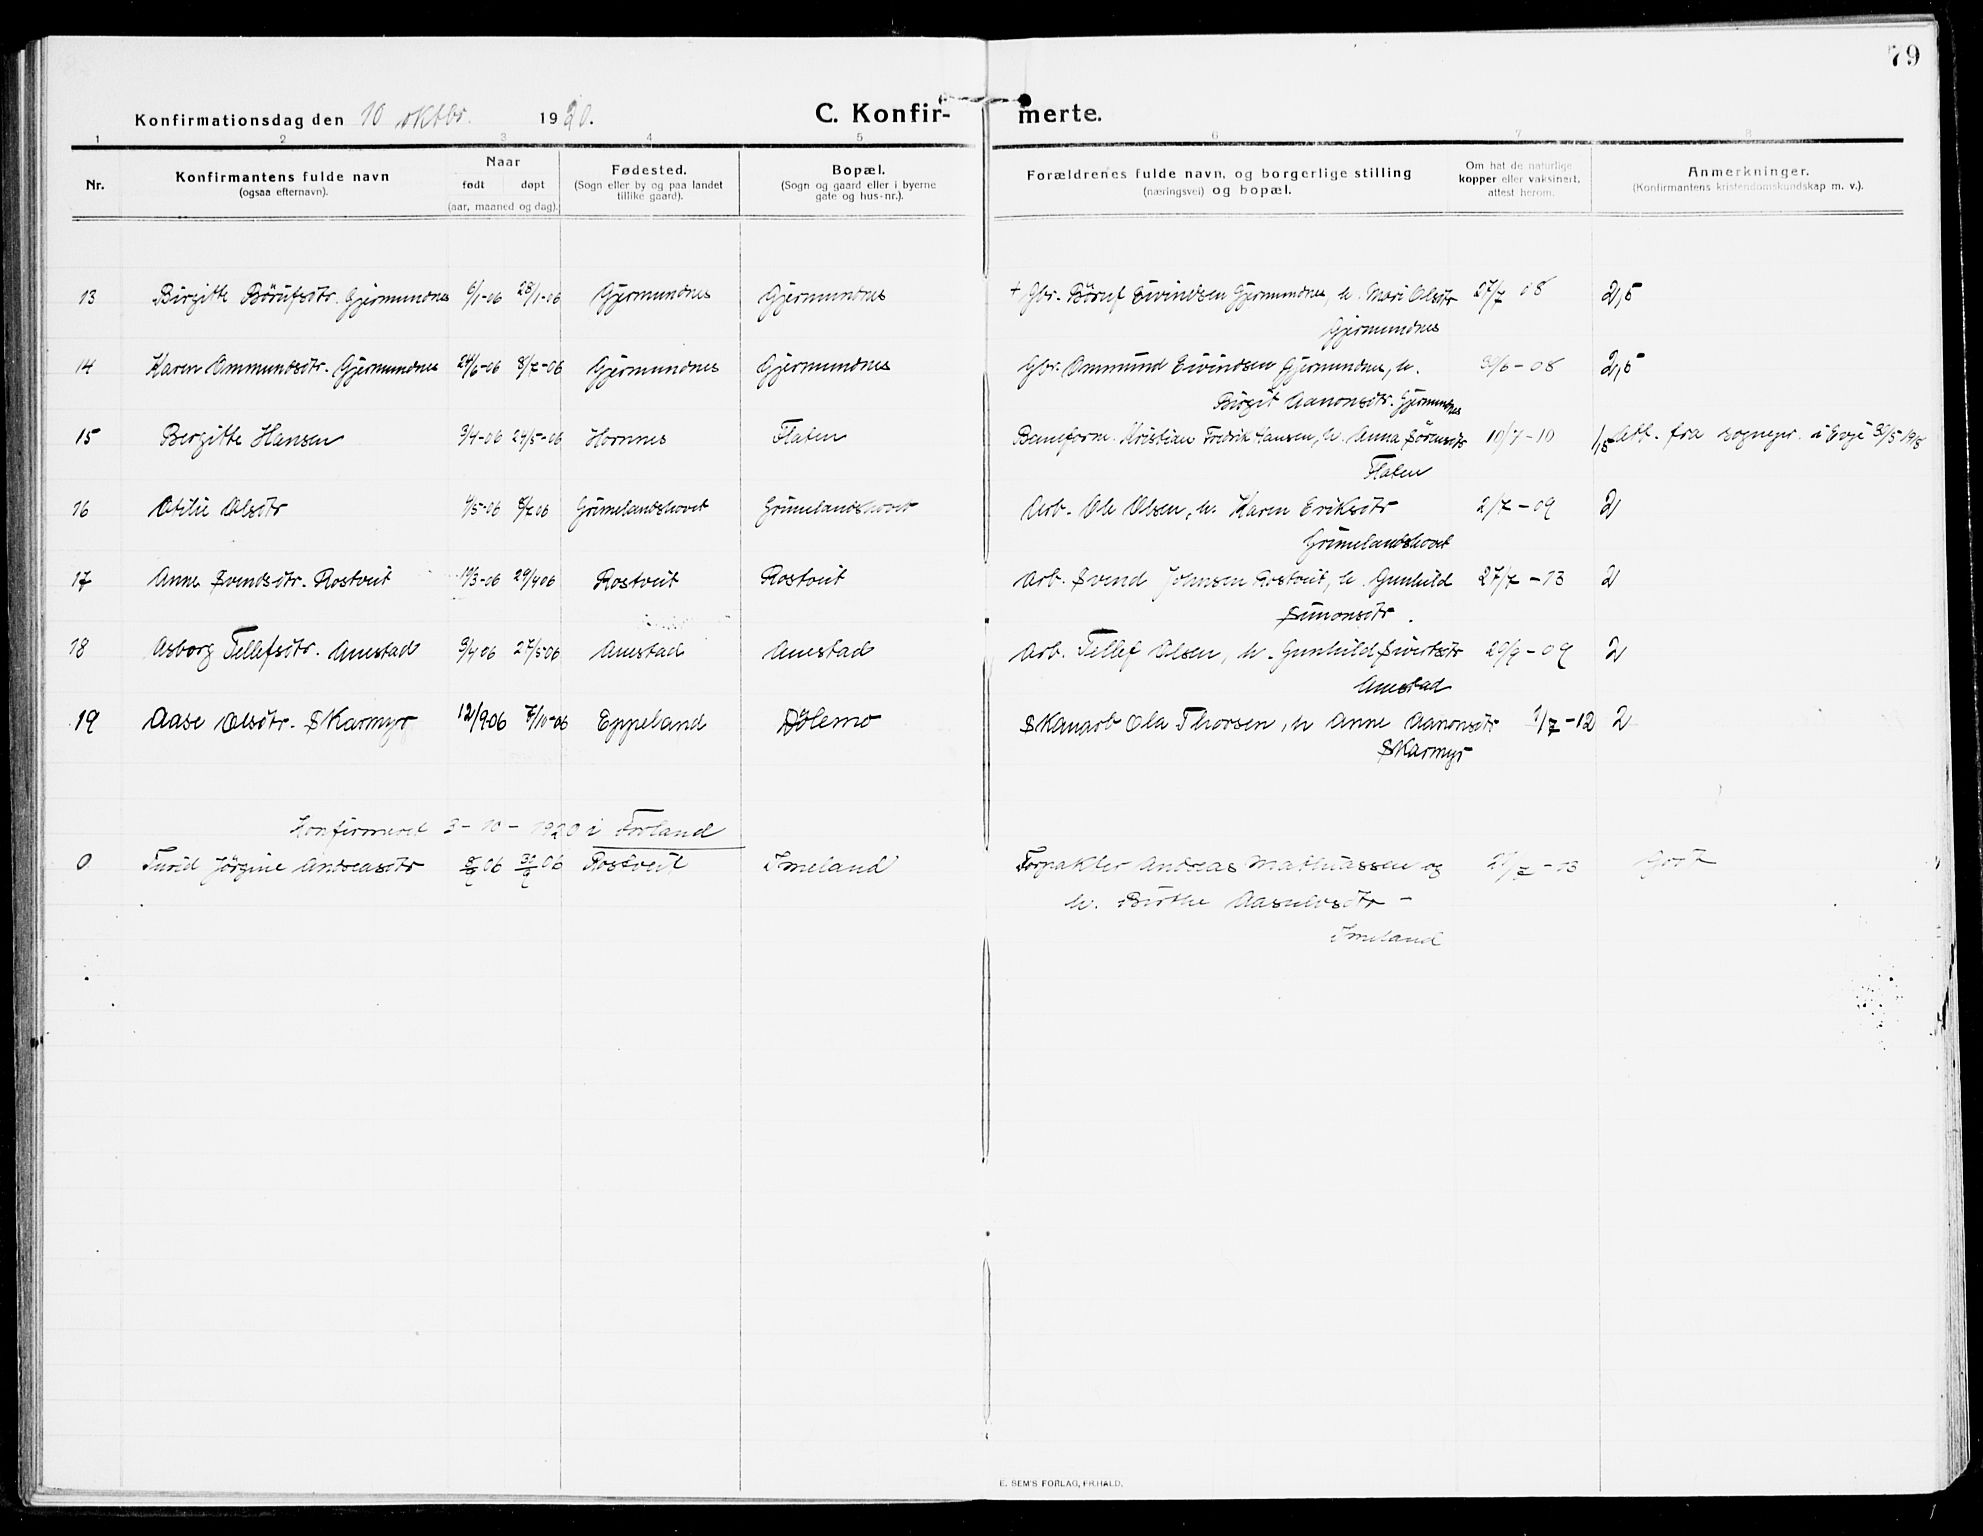 79
Konfirmationsdag den 10 oktbr. 1920. C. Konfir- merte.
1 2 3 4 5 6 7 8
Nr. Konfirmantens fulde navn (ogsaa efternavn). Naar født døpt (aar, maaned og dag). Fødested. (Sogn eller by og paa landet tillike gaard). Bopæl. (Sogn og gaard eller i byerne gate og hus-nr.). Forældrenes fulde navn, og borgerlige stilling (næringsvei) og bopæl. Om hat de naturlige kopper eller vaksinert, attest herom. Anmerkninger. (Konfirmantens kristendomskundskap m. v.).
13 Birgitte Börufsdtr. Gjermundnes 6/1-06 28/1-06 Gjermundnes Gjermundnes + Gbr. Böruf Eivindsen Gjermundnes, h. Mari Olsdtr 27/7 08 2,5
Gjermundnes
14 Karen Ommundsdtr. Gjermundnes 24/6-06 8/7-06 Gjermundnes Gjermundnes Gbr. Ommund Eivindsen Gjermundnes, h. /6-08 2,5
Birgit Aanonsdtr. Gjermundnes
15 Bergitte Hansen 3/4-06 24/5-06 Hornnes Flaten Baneform. Kristian Fredrik Hansen, h. Anna Sörensdtr 10/7-10 1,5 Att. fra sognepr. i Evje
Flaten
16 Otilie Olsdtr /5-06 8/7 06 Grimelandshovet Grimelandshovet Arb. Ole Olsen, h. Karen Eriksdtr 2/7-09 2
Grimelandshovet
17 Anne Svendsdtr. Rostveit /3-06 29/4 06 Rostveit Rostveit Arb. Svend Johnsen Rostveit, h. Gunhild 27/7-13 2
Simonsdtr.
18 Asborg Tellefsdtr. Aunestad 9/4 06 27/5 06 Aunestad Aunestad Arb. Tellef Olsen, h. Gunhild Sivertsdtr 29/9-09 2
Aunestad
19 Aase Olsdtr. Skarmyr 12/9-06 7/10-06 Eppeland Dölemo Skauarb Ola Thorsen, h Anne Aanonsdtr 1/7-12 2
Skarmyr
Konfirmeret 3-10-1920 i Forland
0 Turid Jörgine Andreasdtr 06 06 Rostveit Imeland Forpakter Andreas Mathiassen og 27/7-13 Godt
h. Birthe Aasulvsdtr -
Imeland
E. SEM'S FORLAG, FR.HALD.